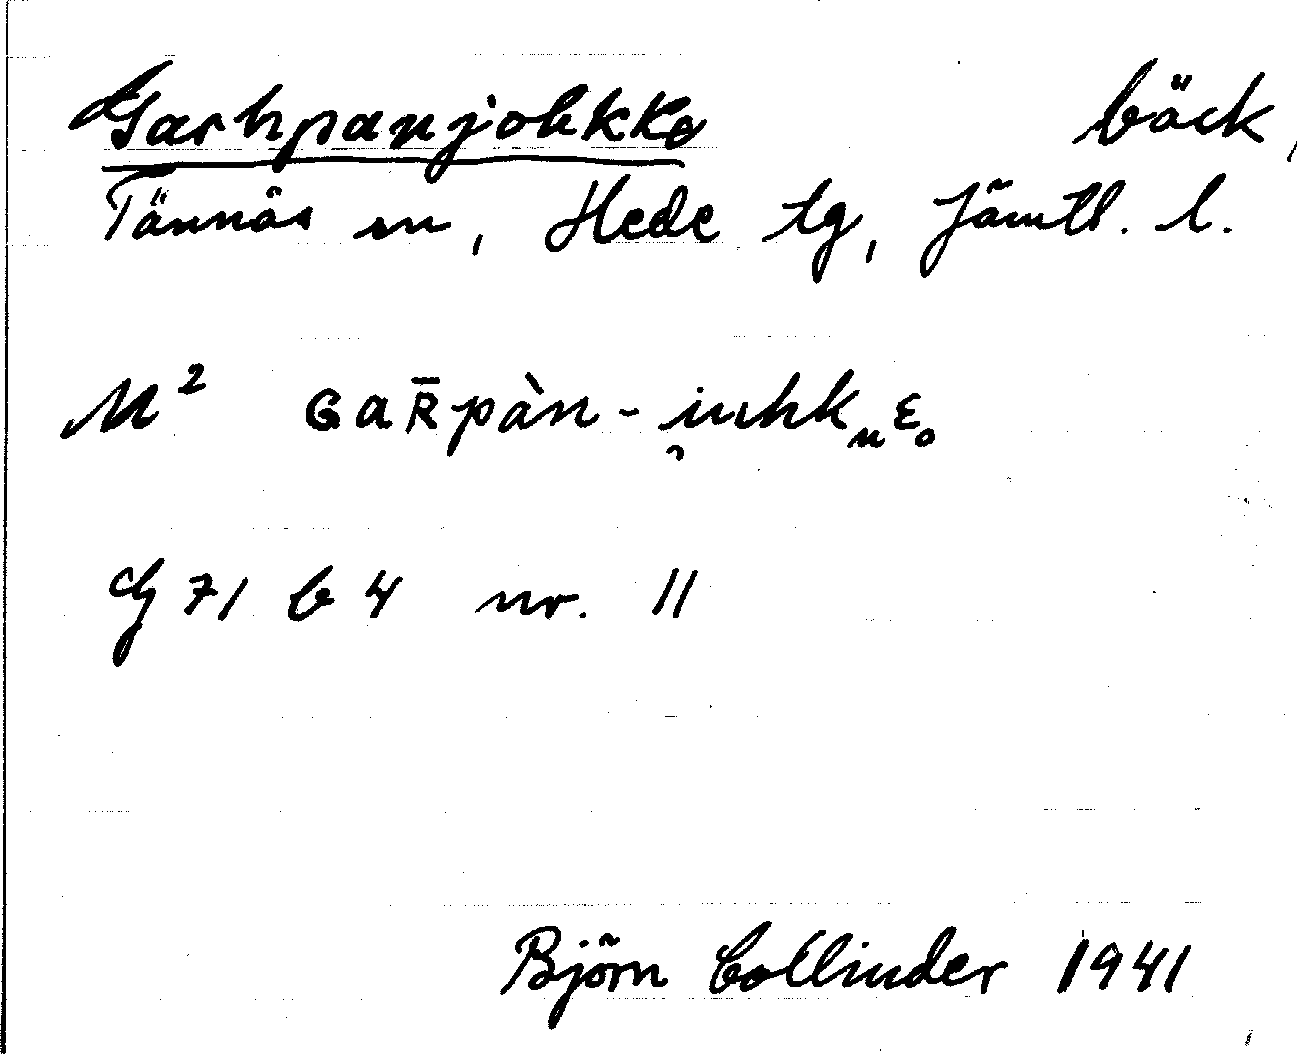 Garhpanjohkke bäck,
Tännäs sn, Hede tg, Jämtl. l.
M² ɢaʀ̄pàn - i̯uhkₙɛₒ
G 71 b 4 nr. 11
Björn Collinder 1941